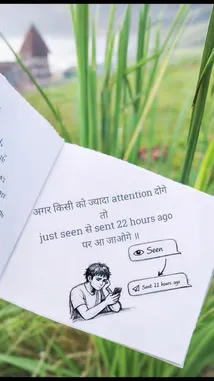 अगर किसी को ज्यादा attention दोगे
तो
just seen से sent 22 hours ago
पर आ जाओगे ॥
Seen
Sent 22 hours ago